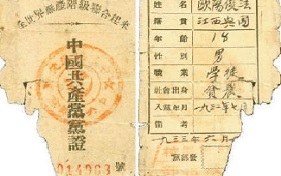 全世界無產階級聯合起來
中國共產黨黨證
號
姓名 歐陽
籍貫 江西興國
年齡 18
性別 男
職業 學徒
社會出身 貧農
入黨年月 一九三二年七月
備考
一九三三年六月
黨部發